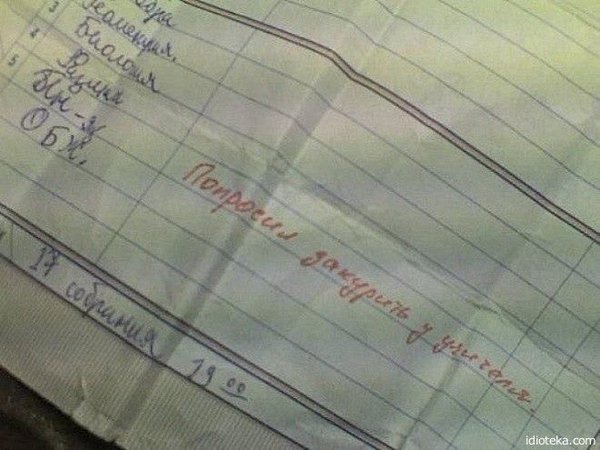 3 Геометрия.
4 Биология
5 Физика
Ин-яз
ОБЖ.
Попросил закурить у учителя.
17 собрания 19 00
idioteka.com